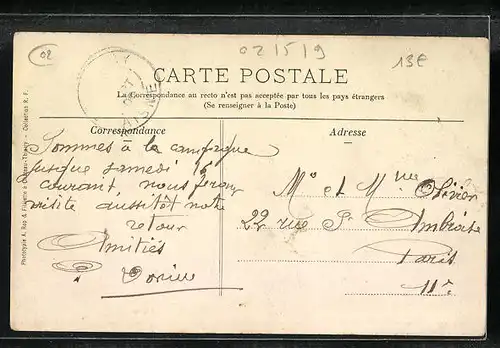 02
02/5/9
13€
CARTE POSTALE
La Correspondance au recto n'est pas acceptée par tous les pays étrangers
(Se renseigner à la Poste)
Correspondance
Sommes à la campagne
jusque samedi
courant, nous ferons
visite aussitôt notre
retour
Amitiés
Adresse
Mr et Mme Olivier
22 rue St Ambroise
Paris
11e
AISNE
Phototypie A. Rep & Filliette à Château-Thierry - Collection R. F.